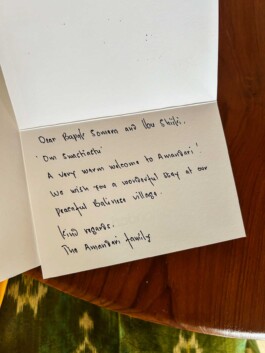 Dear Bapak Somera and Ibu Shilfi,
"Om Swastiastu"
A very warm welcome to Amandari!
We wish you a wonderful stay at our
peaceful Balinese village.
Kind regards,
The Amandari family